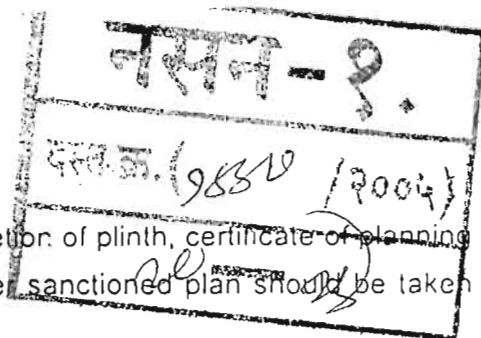 नसन-१.
दस्त.क्र. ( /२००५)
etion of plinth, certificate of planning
er sanctioned plan should be taken